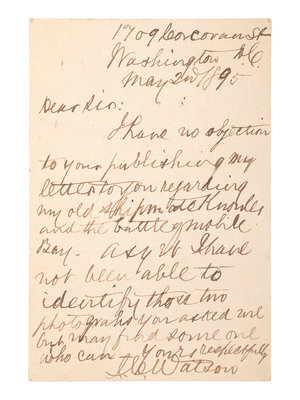 1709 Corcoran St
Washington D.C.
May 2nd 1895
Dear Sir:
I have no objection
to your publishing my
letter to you regarding
my old shipmate Knowles
and the battle of Mobile
Bay. As yet I have
not been able to
identify those two
photographs you asked me
but may find some one
who can Yours respectfully
Watson